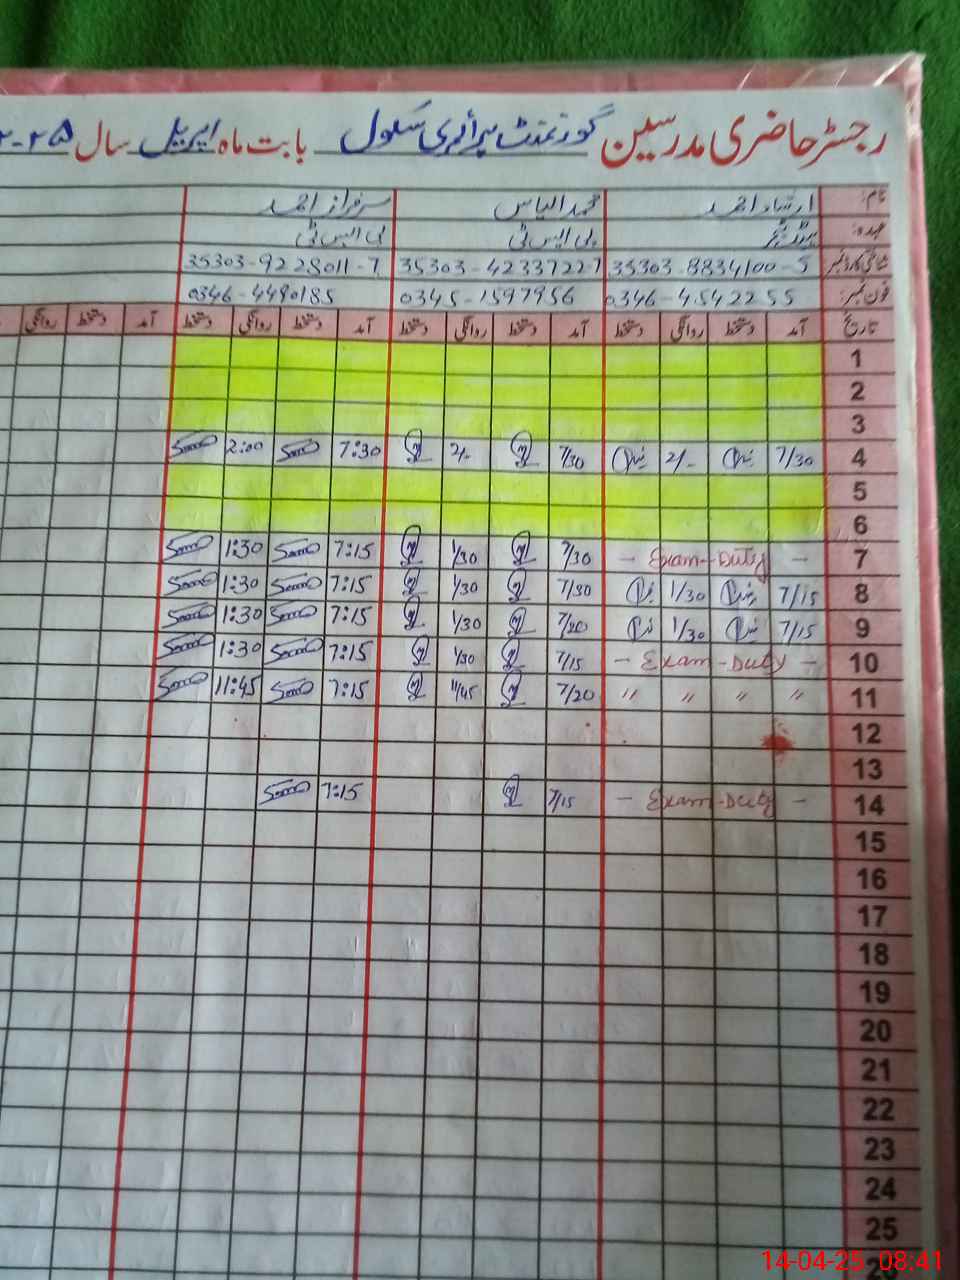 رجسٹر حاضری مدرسین گورنمنٹ پرائمری سکول بابت ماہ اپریل سال ۲۰۲۵
نام: ارشاد احمد محمد الیاس سرفراز احمد
عہدہ: ہیڈ ٹیچر پی ایس ٹی پی ایس ٹی
شناختی کارڈ نمبر 35303-8834100-5 35303-4233722-7 35303-9228011-7
فون نمبر: 0346-4542255 0345-1597956 0346-4490185
تاریخ آمد دستخط روانگی دستخط آمد دستخط روانگی دستخط آمد دستخط روانگی دستخط آمد دستخط روانگی
1
2
3
4 7/30 2/- 7/30 2/- 7:30 2:00
5
6
7 - Exam-Duty - 7/30 1/30 7:15 1:30
8 7/15 1/30 7/30 1/30 7:15 1:30
9 7/15 1/30 7/20 1/30 7:15 1:30
10 - Exam-Duty - 7/15 1/30 7:15 1:30
11 " " " " 7/20 11/45 7:15 11:45
12
13
14 - Exam-Duty - 7/15 7:15
15
16
17
18
19
20
21
22
23
24
25
14-04-25 08:41